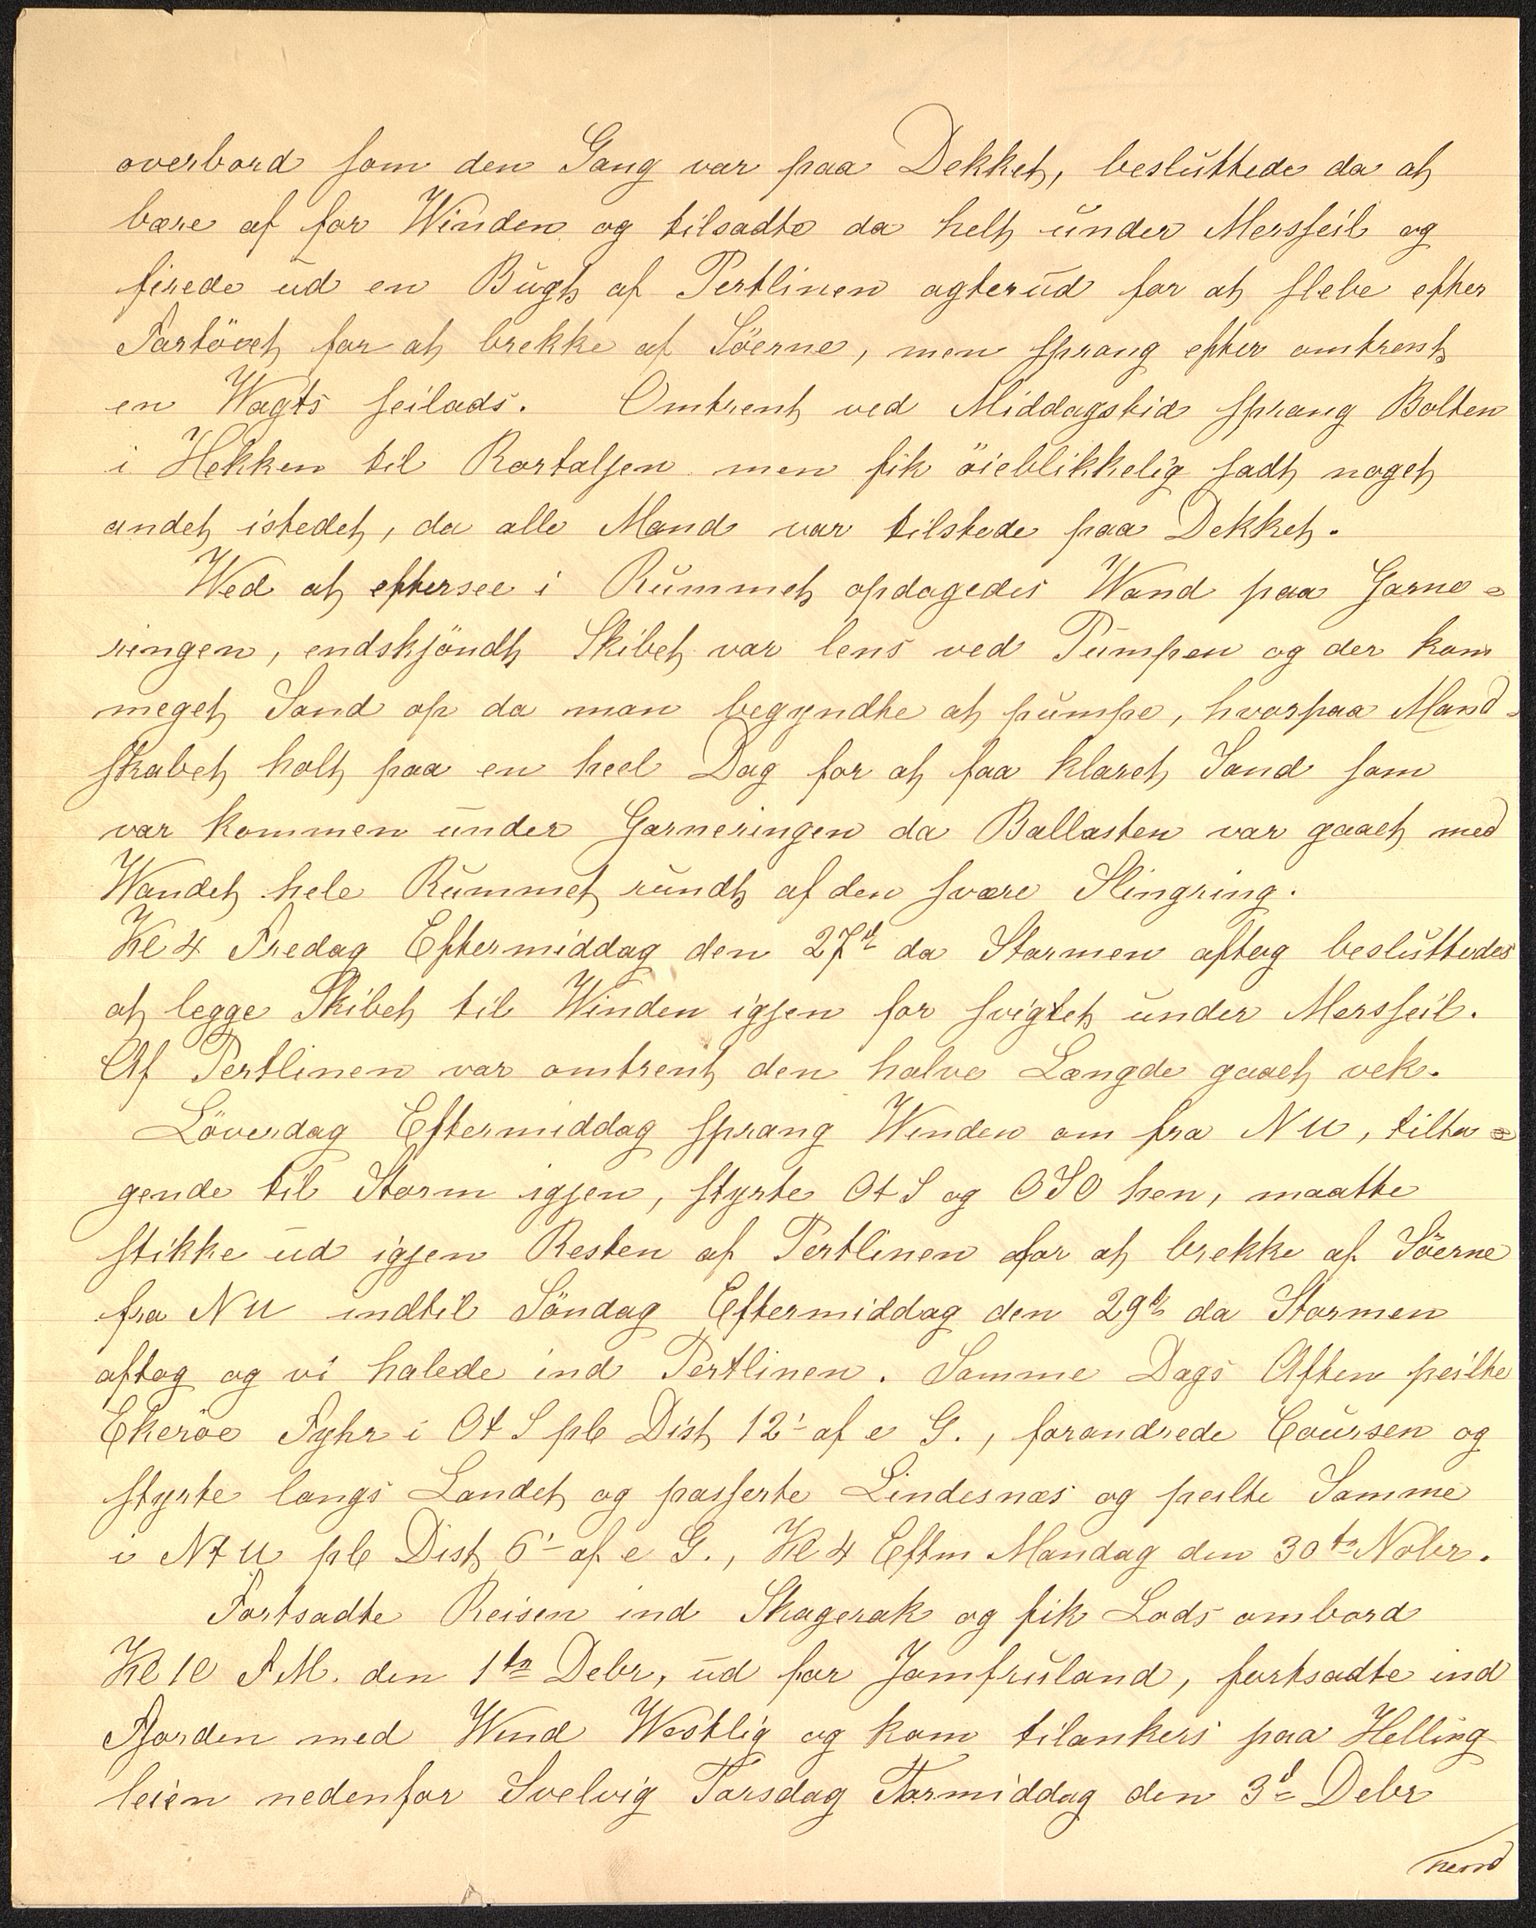 overbord som den Gang var paa Dekket, besluttede da at
bære af for Winden og tilsadte da helt under Mersseil og
firede ud en Bugt af Pertlinen agterud for at slebe efter
Fartöiet for at brekke af Söerne, men sprang efter omtrent
en Wagts seilads. Omtrent ved Middagstid sprang Bolten
i Hekken til Rortaljen men fik öieblikkelig sadt noget
andet istedet, da alle Mand var tilstede paa Dekket.
Wed at eftersee i Rummet opdagedes Wand paa Garne=
ringen, endskjöndt Skibet var lens ved Pumpen og der kom
meget Sand op da man begyndte at pumpe, hvorpaa Mand=
skabet holt paa en heel Dag for at faa klaret Sand som
var kommen under Garneringen da Ballasten var gaaet med
Wandet hele Rummet rundt af den svære Slingring.
Kl 4 Fredag Eftermiddag den 27de da Stormen aftog besluttedes
at legge Skibet til Winden igjen for svigtet under Mersseil.
Af Pertlinen var omtrent den halve Længde gaaet vek.
Löverdag Eftermiddag sprang Winden om fra NW, tilta=
gende til Storm igjen, styrte OtS og OSO hen, maatte
stikke ud igjen Resten af Pertlinen for at brekke af Söerne
fra NW indtil Söndag Eftermiddag den 29de da Stormen
aftog og vi halede ind Pertlinen. Samme Dags Aften peilte
Ekeröe Fyhr i OtS pC Dist 12' af e G., forandrede Coursen og
styrte langs Landet og passerte Lindesnæs og peilte Samme
i NtW pC Dist 6' af e G., Kl 4 Eftm Mandag den 30te Nobr.
Fortsadte Reisen ind Skagerak og fik Lods ombord
Kl 10 FM. den 1te Debr, ud for Jomfruland, fortsadte ind
Fjorden med Wind Westlig og kom tilankers paa Helling
leien nedenfor Svelvig Torsdag Formiddag den 3de Debr